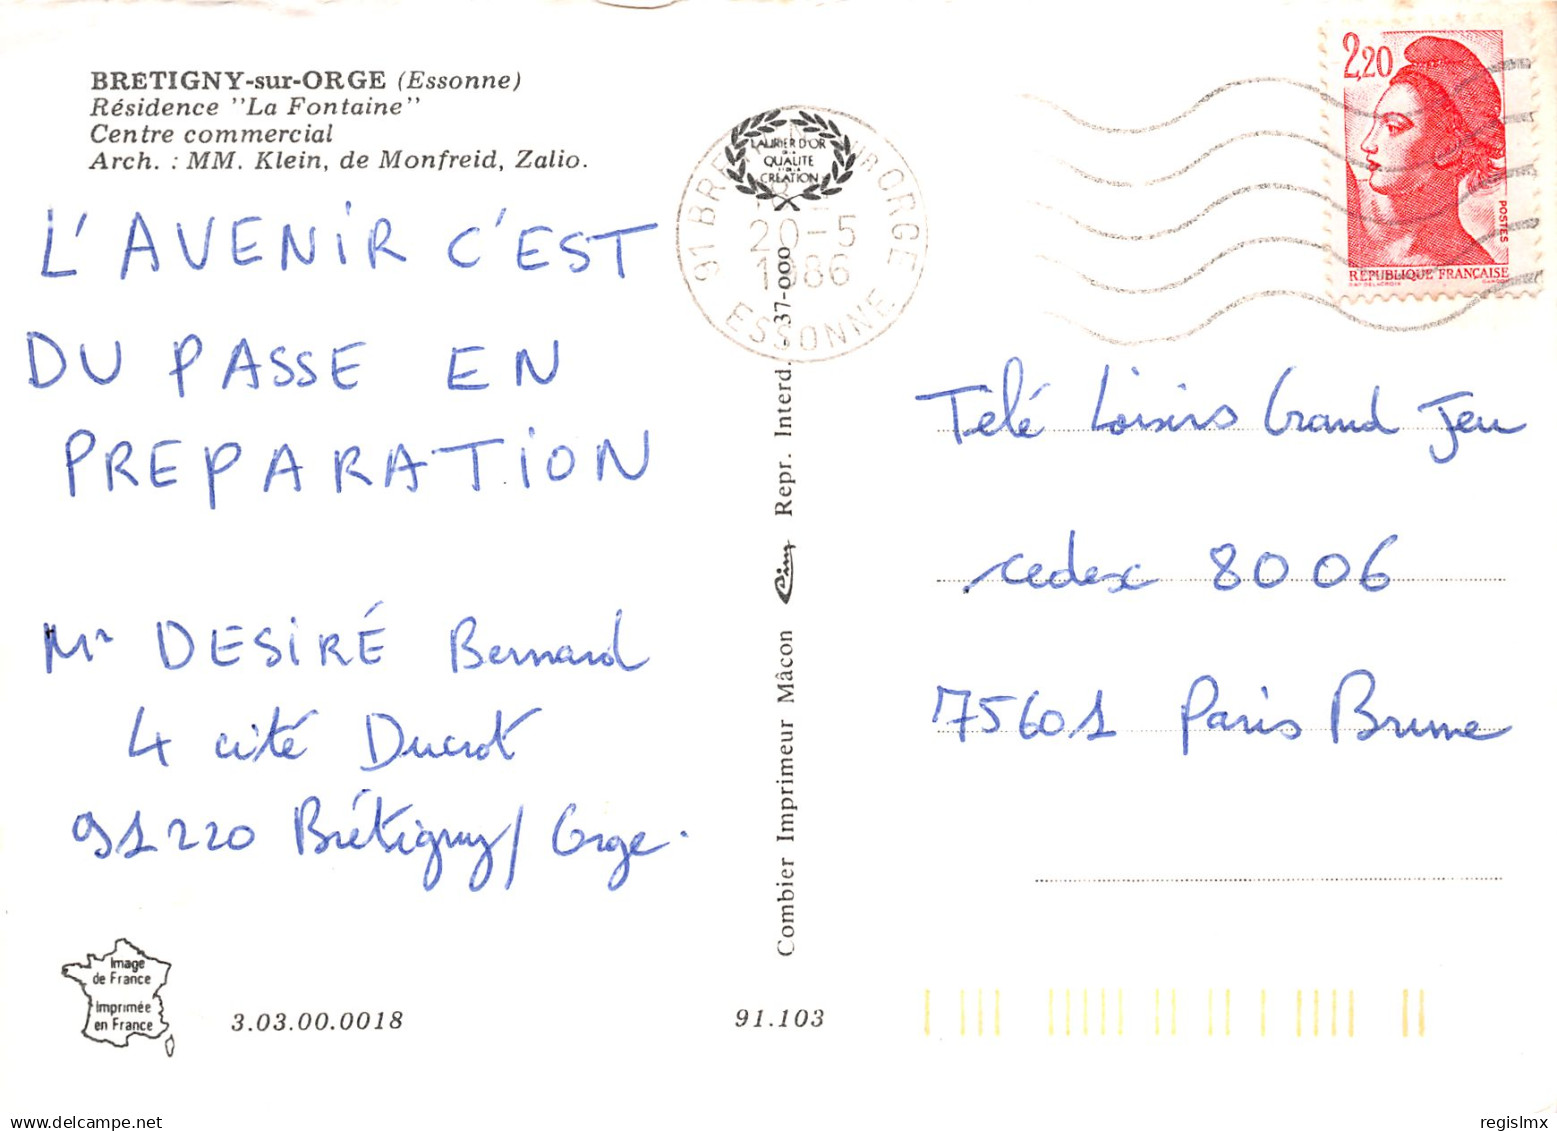 BRETIGNY-sur-ORGE (Essonne)
Résidence "La Fontaine"
Centre commercial
Arch. : MM. Klein, de Monfreid, Zalio.
L'AVENIR C'EST
DU PASSE EN
PREPARATION
Mr DESIRÉ Bernard
4 cité Ducrot
91220 Brétigny/Orge.
Image
de France
Imprimée
en France
3.03.00.0018
91.103
Combier Imprimeur Mâcon Cim Repr. Interd. 37-000
LAURIER D'OR
DE LA
QUALITE
ET DE LA
CREATION
91 BRETIGNY SUR ORGE
20-5
1986
ESSONNE
2,20
POSTES
REPUBLIQUE FRANÇAISE
Télé Loisirs Grand Jeu
cedex 8006
75601 Paris Brune
regislmx